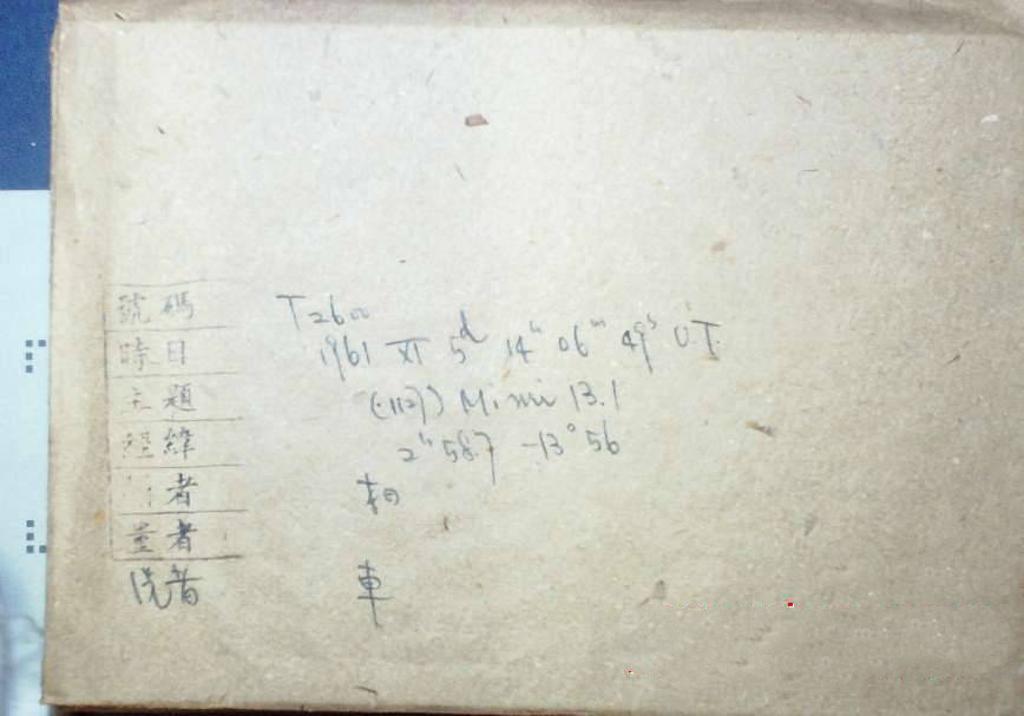 號碼 T2600
時日 1961 XI 5d 14h 06m 49s UT
主題 (1127) Mimi 13.1
經緯 2h 58.7 -13° 56
者 相
量者
洗者 車